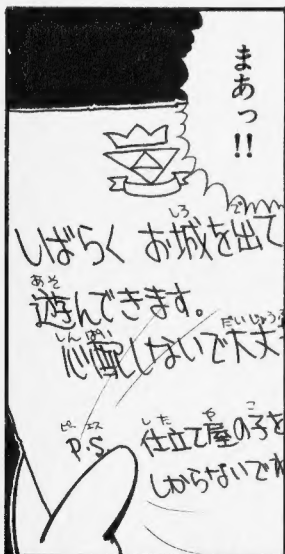 まあっ!!
しばらく お城を出て
遊んできます。
心配しないで大丈
P.S 仕立て屋の子を
しからないでね